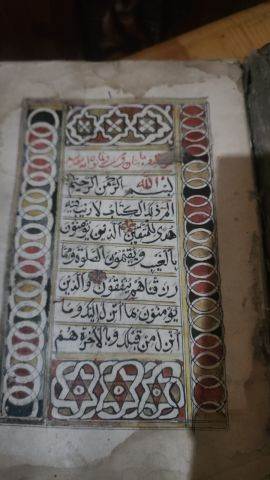 بسم الله الرحمن الرحيم
الم ذلك الكتاب لا ريب فيه
هدى للمتقين الذين يؤمنون
بالغيب ويقيمون الصلوة ومما
رزقناهم ينفقون والذين
يؤمنون بما انزل اليك وما
انزل من قبلك وبالاخرة هم